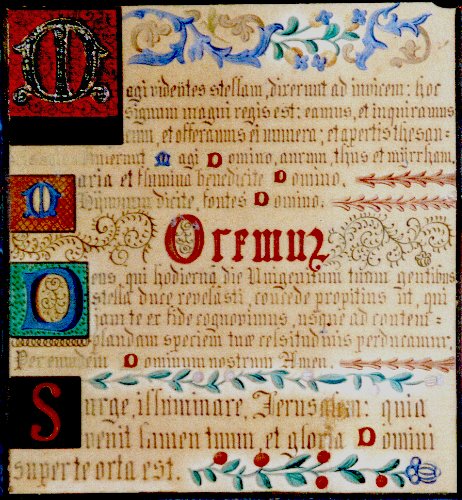 Magi videntes stellam, dixerunt ad invicem: hoc
signum magni regis est: eamus, et inquiramus
eum, et offeramus ei munera; et apertis thesau-
obtulerunt Magi Domino, aurum, thus et myrrham.
Maria et flumina benedicite Domino.
Hymnum dicite, fontes Domino.
Oremus
Deus, qui hodierna die Unigenitum tuum gentibus
stella duce revelasti, concede propitius ut, qui
jam te ex fide cognovimus, usque ad contem-
plandam speciem tuæ celsitudinis perducamur.
Per eundem Dominum nostrum Amen.
Surge, illuminare, Jerusalem: quia
venit lumen tuum, et gloria Domini
super te orta est.